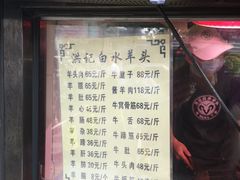 洪记白水羊头
羊头肉65元/斤
羊 腮60元/斤
羊 肚65元/斤
羊 心45元/斤
羊 肠48元/斤
羊 杂36元/斤
羊 蹄38元/斤
羊 肝38元/斤
羊 8元/个
牛腱子68元/斤
酱羊肉118元/斤
牛窝骨筋68元/斤
牛 舌68元/斤
牛蹄筋65元/斤
牛 肚65元/斤
牛头肉48元/斤